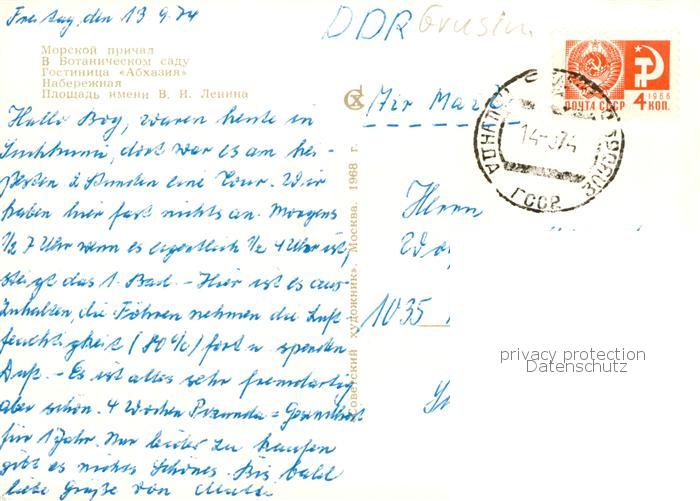 Freitag, den 13 9.74
DDR Grusin.
Морской причал
В Ботаническом саду
Гостиница «Абхазия»
Набережная
Площадь имени В. И. Ленина
ПОЧТА СССР 4 КОП.
1966
14-74
ГССР
Air Mail
Hallo Boy, waren heute in
Suchumi, dort war es am hei-
ßesten 2 Stunden eine Tour. Wir
haben hier fast nichts an. Morgens
1/2 7 Uhr wenn es eigentlich 1/2 4 Uhr ist,
steigt das 1. Bad. - Hier ist es aus-
zuhalten, die Föhren nehmen die Luft-
feuchtigkeit (80%) fort u spenden
Duft. - Es ist alles sehr fremdartig
aber schön. 4 Wochen Pizunda = Gesundheit
für 1 Jahr. Nur leider zu kaufen
gibt es nichts Schönes. Bis bald
liebe Grüße von
«Советский художник». Москва. 1968 г.
Herrn
1035
privacy protection
Datenschutz